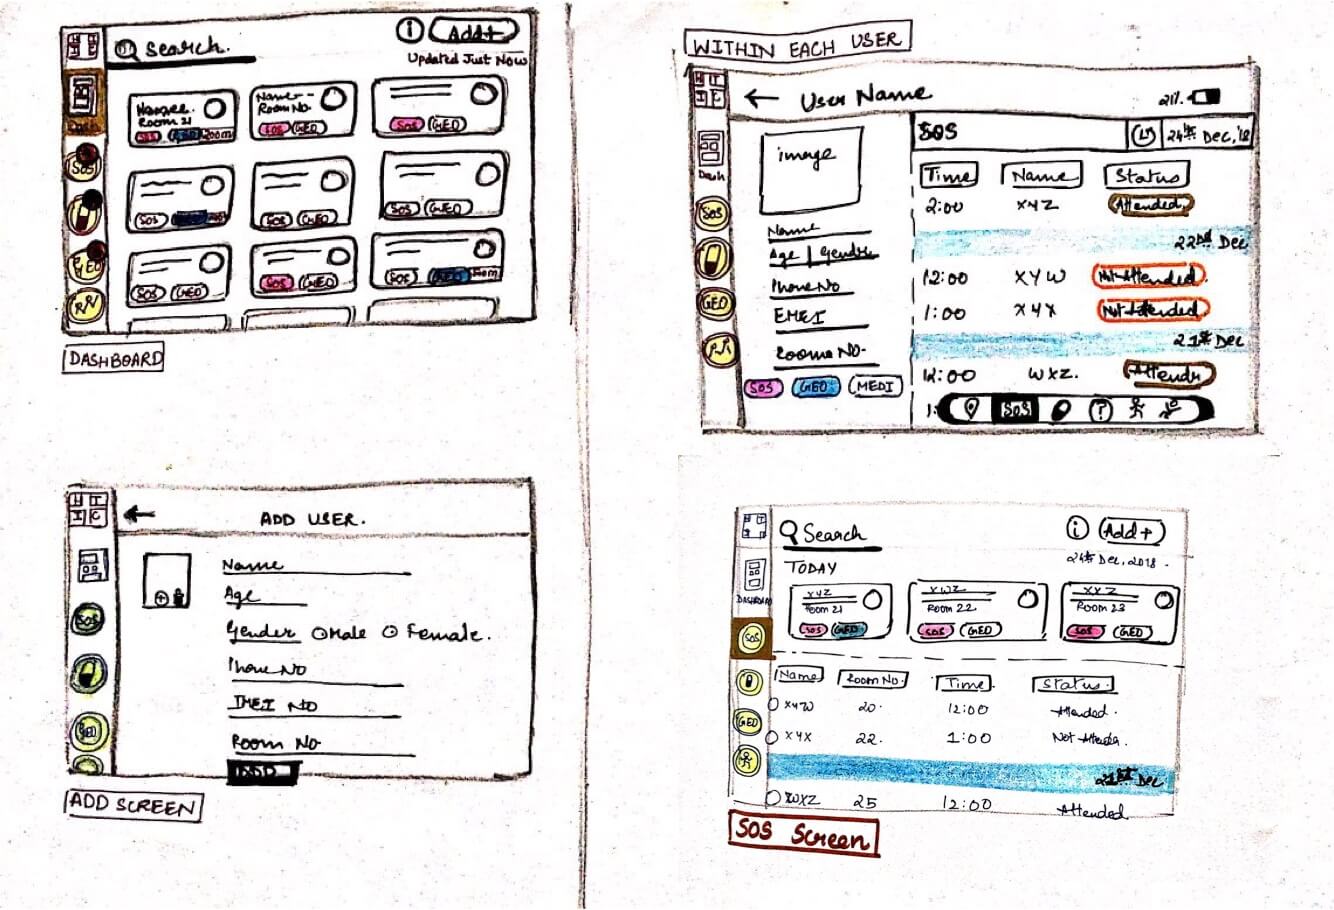 Search.
i Add+
Updated Just Now
Dash
SOS
GEO
Room 21
SOS
Name
Room No.
SOS GEO
SOS GEO
SOS
SOS GEO
SOS GEO
SOS GEO
SOS GEO
SOS GEO
DASHBOARD
WITHIN EACH USER
← User Name
21%
Dash
SOS
GEO
image
Name
Age | Gender
Phone No
EMEI
Room NO.
SOS GEO MEDI
SOS
24th Dec,'18
Time Name Status
2:00 XYZ Attended
22nd Dec
12:00 XYW Not Attended
1:00 XYX Not Attended
21st Dec
12:00 WXZ. Attended
1:
SOS ?
HT
IC
← ADD USER.
SOS
GEO
Name
Age
Gender Male Female.
Phone No
IMEI NO
Room No.
ADD
ADD SCREEN
Search
i Add+
24th Dec, 2018.
TODAY
DASHBOARD
SOS
GEO
XYZ
Room 21
SOS GEO
XWZ
Room 22
SOS GEO
XXZ
Room 23
SOS GEO
Name Room No. Time Status
XYW 20. 12:00 Attended.
XYX 22. 1:00 Not Attended.
Dec
WXZ 25 12:00 Attended
SOS Screen